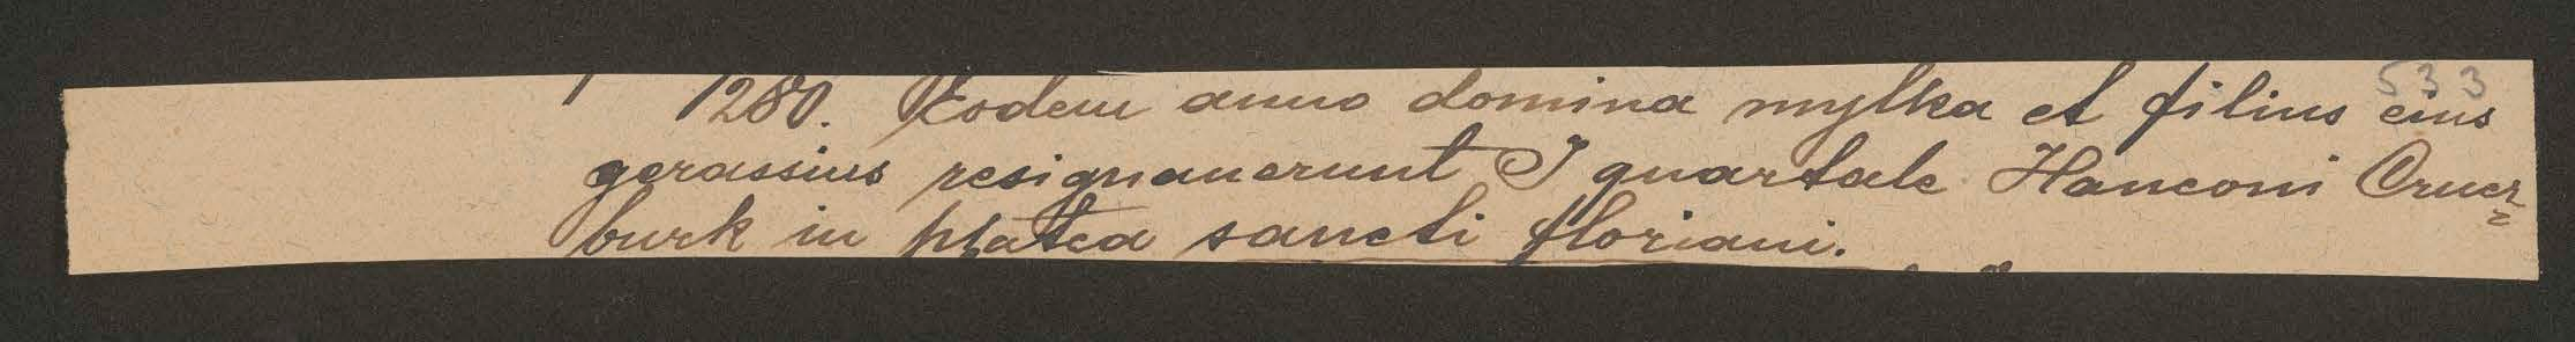 533
1280. Eodem anno domina mylka et filius eius
gerassius resignauerunt I quartale Hanconi Crucz=
burk in platea sancti floriani.